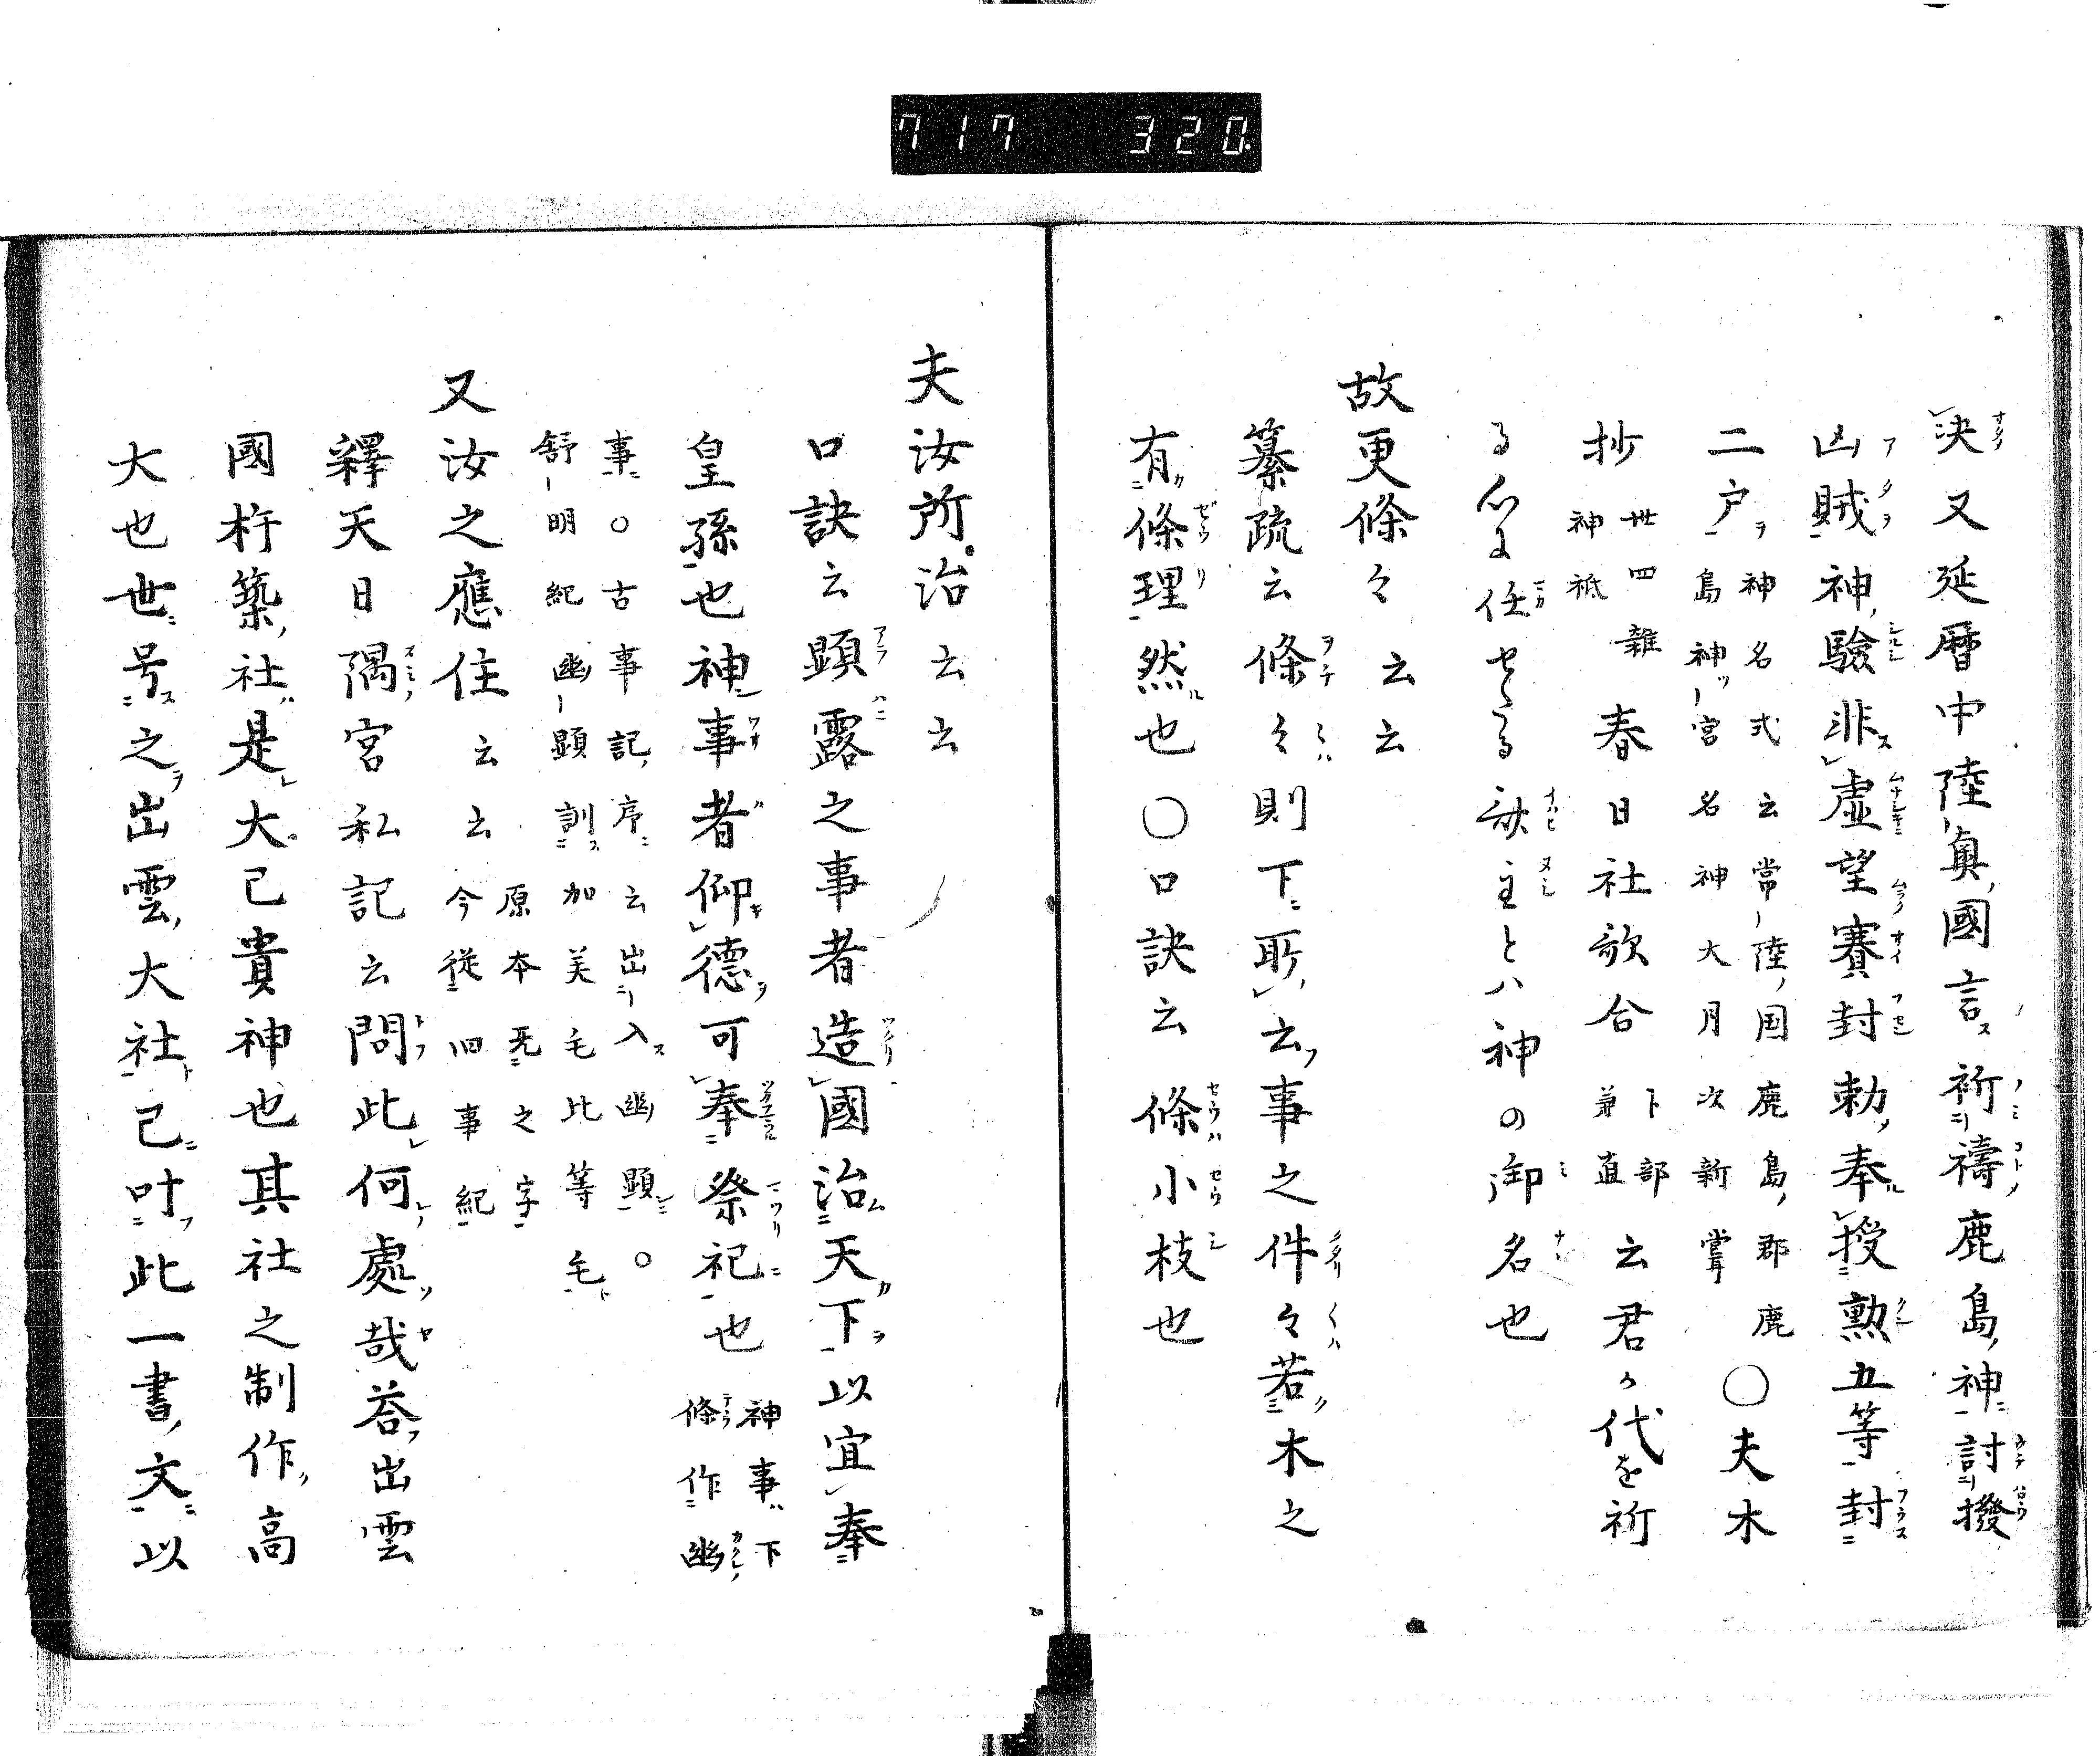 717 320
決又延暦中陸奥國言祈禱鹿島神討撥
凶賊神驗非虚望賽封勅奉授勲五等封
二戸 神名式云常陸国鹿島郡鹿島神宮名神大月次新嘗 〇夫木
抄 卅四雜神祇 春日社歌合 卜部兼直 云君か代を祈
る心に任せたる 主とハ神の御名也
故更條々云云
纂疏云條々則下所云事之件々若木之
有條理然也〇口訣云條小枝也
夫汝所治云云
口訣云顕露之事者造國治天下以宜奉
皇孫也神事者仰德可奉祭祀也 神事下條作幽
事〇古事記序云出入幽顕〇舒明紀幽顕訓加美毛比等毛
又汝之應住云云 原本旡之字今從旧事紀
釋天日隅宮私記云問此何處哉荅出雲
國杵築社是大己貴神也其社之制作高
大也世号之出雲大社己叶此一書文以